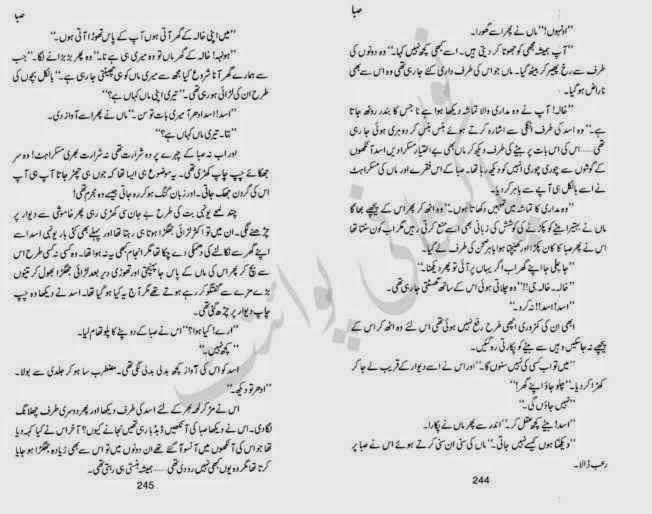 صبا
"اونہوں!" ماں نے پھر اسے گھورا۔
"آپ ہمیشہ مجھی کو جھوٹا کر دیتی ہیں۔ اسے کبھی کچھ نہیں کہا۔" وہ دونوں کی
طرف سے رخ پھیر کر بیٹھ گیا۔ ماں جو اس کی طرف داری کئے جا رہی تھی وہ اس سے بھی
ناراض ہو گیا۔
"خالہ! آپ نے وہ مداری والا تماشہ دیکھا ہوا ہے نا جس کا بندر روٹھ جاتا
ہے۔" وہ اسد کی طرف انگلی سے اشارہ کرتے ہوئے ہنس ہنس کر دوہری ہوئی جا رہی
تھی ..... اس کی اس بات پر بیٹے کی طرف دیکھ کر ماں بھی بے اختیار مسکرا دیں اسد آنکھوں
کے گوشوں سے چوری چوری انہیں کو دیکھ رہا تھا۔ صبا کے اس فقرے اور ماں کی مسکراہٹ
نے اسے بالکل ہی آپے سے باہر کر دیا۔
"وہ مداری کا تماشہ میں تمہیں دکھاتا ہوں۔" وہ اٹھ کر اس کے پیچھے بھاگا
ماں نے بہتیرا بیٹے کو پکڑنے کی کوشش کی زبانی بھی اسے منع کرتی رہیں مگر اب کون سنتا تھا
اس نے پھر صبا کا کان پکڑا اور کھینچتا ہوا باہر صحن کی طرف لے گیا۔
"جا چلی جا اپنے گھر اب اگر یہاں پر آئی تو پھر دیکھنا۔"
"خالہ۔ خالہ جی!!" وہ چلاتی ہوئی اس کے ساتھ گھسٹتی جا رہی تھی۔
"اسد! اسد!! نہ کرو۔"
ابھی ان کی کمزوری اچھی طرح رفع نہیں ہوئی تھی اس لئے وہ اٹھ کر اس کے
پیچھے نہ جا سکیں وہیں سے بیٹے کو پکارتی رہ گئیں۔
"میں تو اب کسی کی نہیں سنوں گا۔" اور اس نے اسے دیوار کے قریب لے جا کر
کھڑا کر دیا۔ "چلو جاؤ اپنے گھر!"
"نہیں جاؤں گی۔"
"اسد! بیٹے کچھ عقل کر۔" اندر سے پھر ماں نے پکارا۔
"دیکھتا ہوں کیسے نہیں جاتی۔" ماں کی سنی ان سنی کرتے ہوئے اس نے صبا پر
رعب ڈالا۔
244
صبا
"میں اپنی خالہ کے گھر آتی ہوں آپ کے پاس تھوڑا آتی ہوں۔"
"ہونہہ! خالہ کے گھر ماں تو وہ میری ہی ہے نا۔" وہ پھر بڑبڑانے لگا۔ "جب
سے ہمارے گھر آنا شروع کیا مجھ سے میری ماں کو ہی چھینتی جا رہی ہے۔" بالکل بچوں کی
طرح ان کی لڑائی ہو رہی تھی۔ "تیری اپنی ماں کہاں ہے؟"
"اسد! اسد ادھر آ میری بات تو سن۔" ماں نے پھر اسے آواز دی۔
"بتا۔ تیری ماں کہاں ہے؟"
اور اب نہ صبا کے چہرے پر وہ شرارت تھی نہ شرارت بھری مسکراہٹ! وہ سر
جھکائے چپ چاپ کھڑی تھی۔ یہ موضوع ہی ایسا تھا کہ جوں ہی چھڑ جاتا آپ ہی آپ
اس کی گردن جھک جاتی۔ اور زبان گنگ ہو کر رہ جاتی جیسے وہ مجرم تھی!
چند لمحے یونہی بت کی طرح بے جان سی کھڑی رہی پھر خاموشی سے دیوار پر
چڑھنے لگی۔ ان میں تو اکثر لڑائی جھگڑا ہوتا ہی رہتا تھا اور پہلے بھی کئی بار یونہی اسد اسے
اپنے گھر سے نکالنے کی دھمکی دے چکا تھا مگر انجام کبھی یہ نہ ہوا تھا۔ وہ کسی نہ کسی طرح اس
سے بچ کر پھر اس کی ماں کے پاس جا پہنچتی اور تھوڑی دیر بعد لڑائی جھگڑا بھول کر تینوں
بڑے مزے سے گفتگو کر رہے ہوتے تھے مگر آج یہ کیا ہو گیا تھا۔ اسد نے دیکھا وہ چپ
چاپ دیوار پر چڑھ گئی تھی۔
"ارے! کیا ہوا؟" اس نے صبا کے دوپٹے کا پلو تھام لیا۔
"کچھ نہیں۔"
اسد کو اس کی آواز کچھ بدلی بدلی لگی تھی۔ مضطرب سا ہو کر جلدی سے بولا۔
"ادھر تو دیکھ۔"
اس نے مڑ کر لمحہ بھر کے لئے اسد کی طرف دیکھا اور پھر دوسری طرف چھلانگ
لگا دی۔ اس نے دیکھا صبا کی آنکھیں ڈبڈبا رہی تھیں نجانے کیوں؟ آخر اس نے کیا کہہ دیا
تھا جو اس کی آنکھوں میں آنسو آ گئے تھے ان دونوں میں تو اس سے بھی زیادہ جھگڑا ہو جایا
کرتا تھا مگر وہ یوں کبھی نہیں رو دی تھی ..... ہمیشہ ہنستی ہی رہتی تھی۔
245